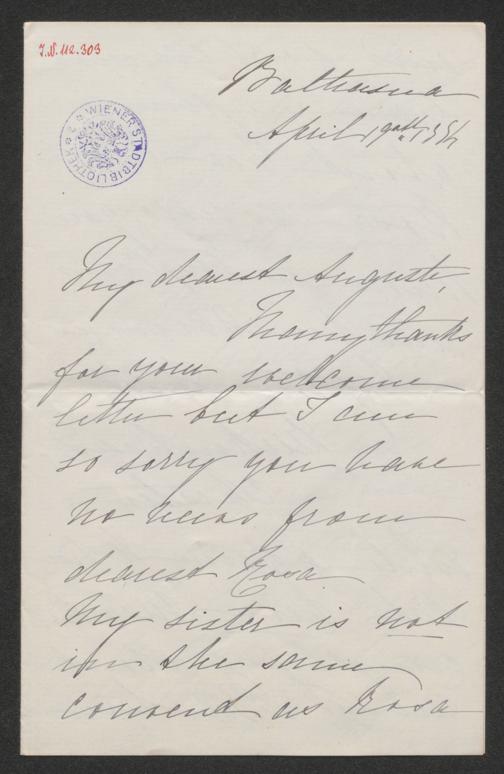 I.N. 112.303
WIENER STADTBIBLIOTHEK
April 19th
My dearest Auguste,
Many thanks
for your welcome
letter but I am
so sorry you have
no news from
dearest Rosa
My sister is not
in the same
convent as Rosa